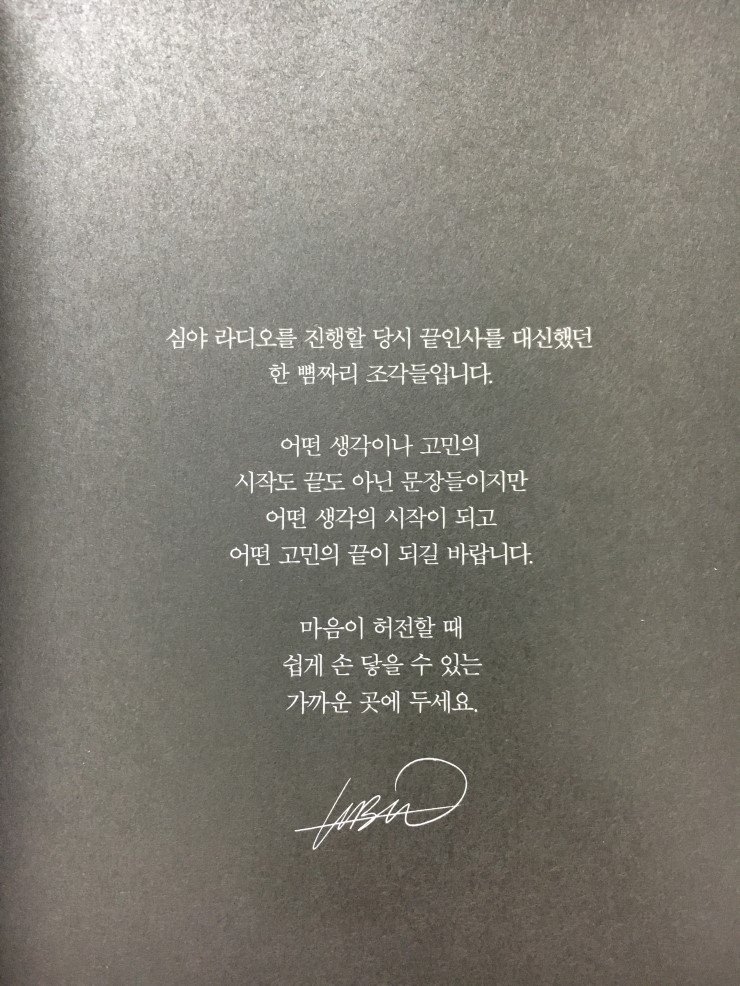 심야 라디오를 진행할 당시 끝인사를 대신했던
한 뼘짜리 조각들입니다.
어떤 생각이나 고민의
시작도 끝도 아닌 문장들이지만
어떤 생각의 시작이 되고
어떤 고민의 끝이 되길 바랍니다.
마음이 허전할 때
쉽게 손 닿을 수 있는
가까운 곳에 두세요.